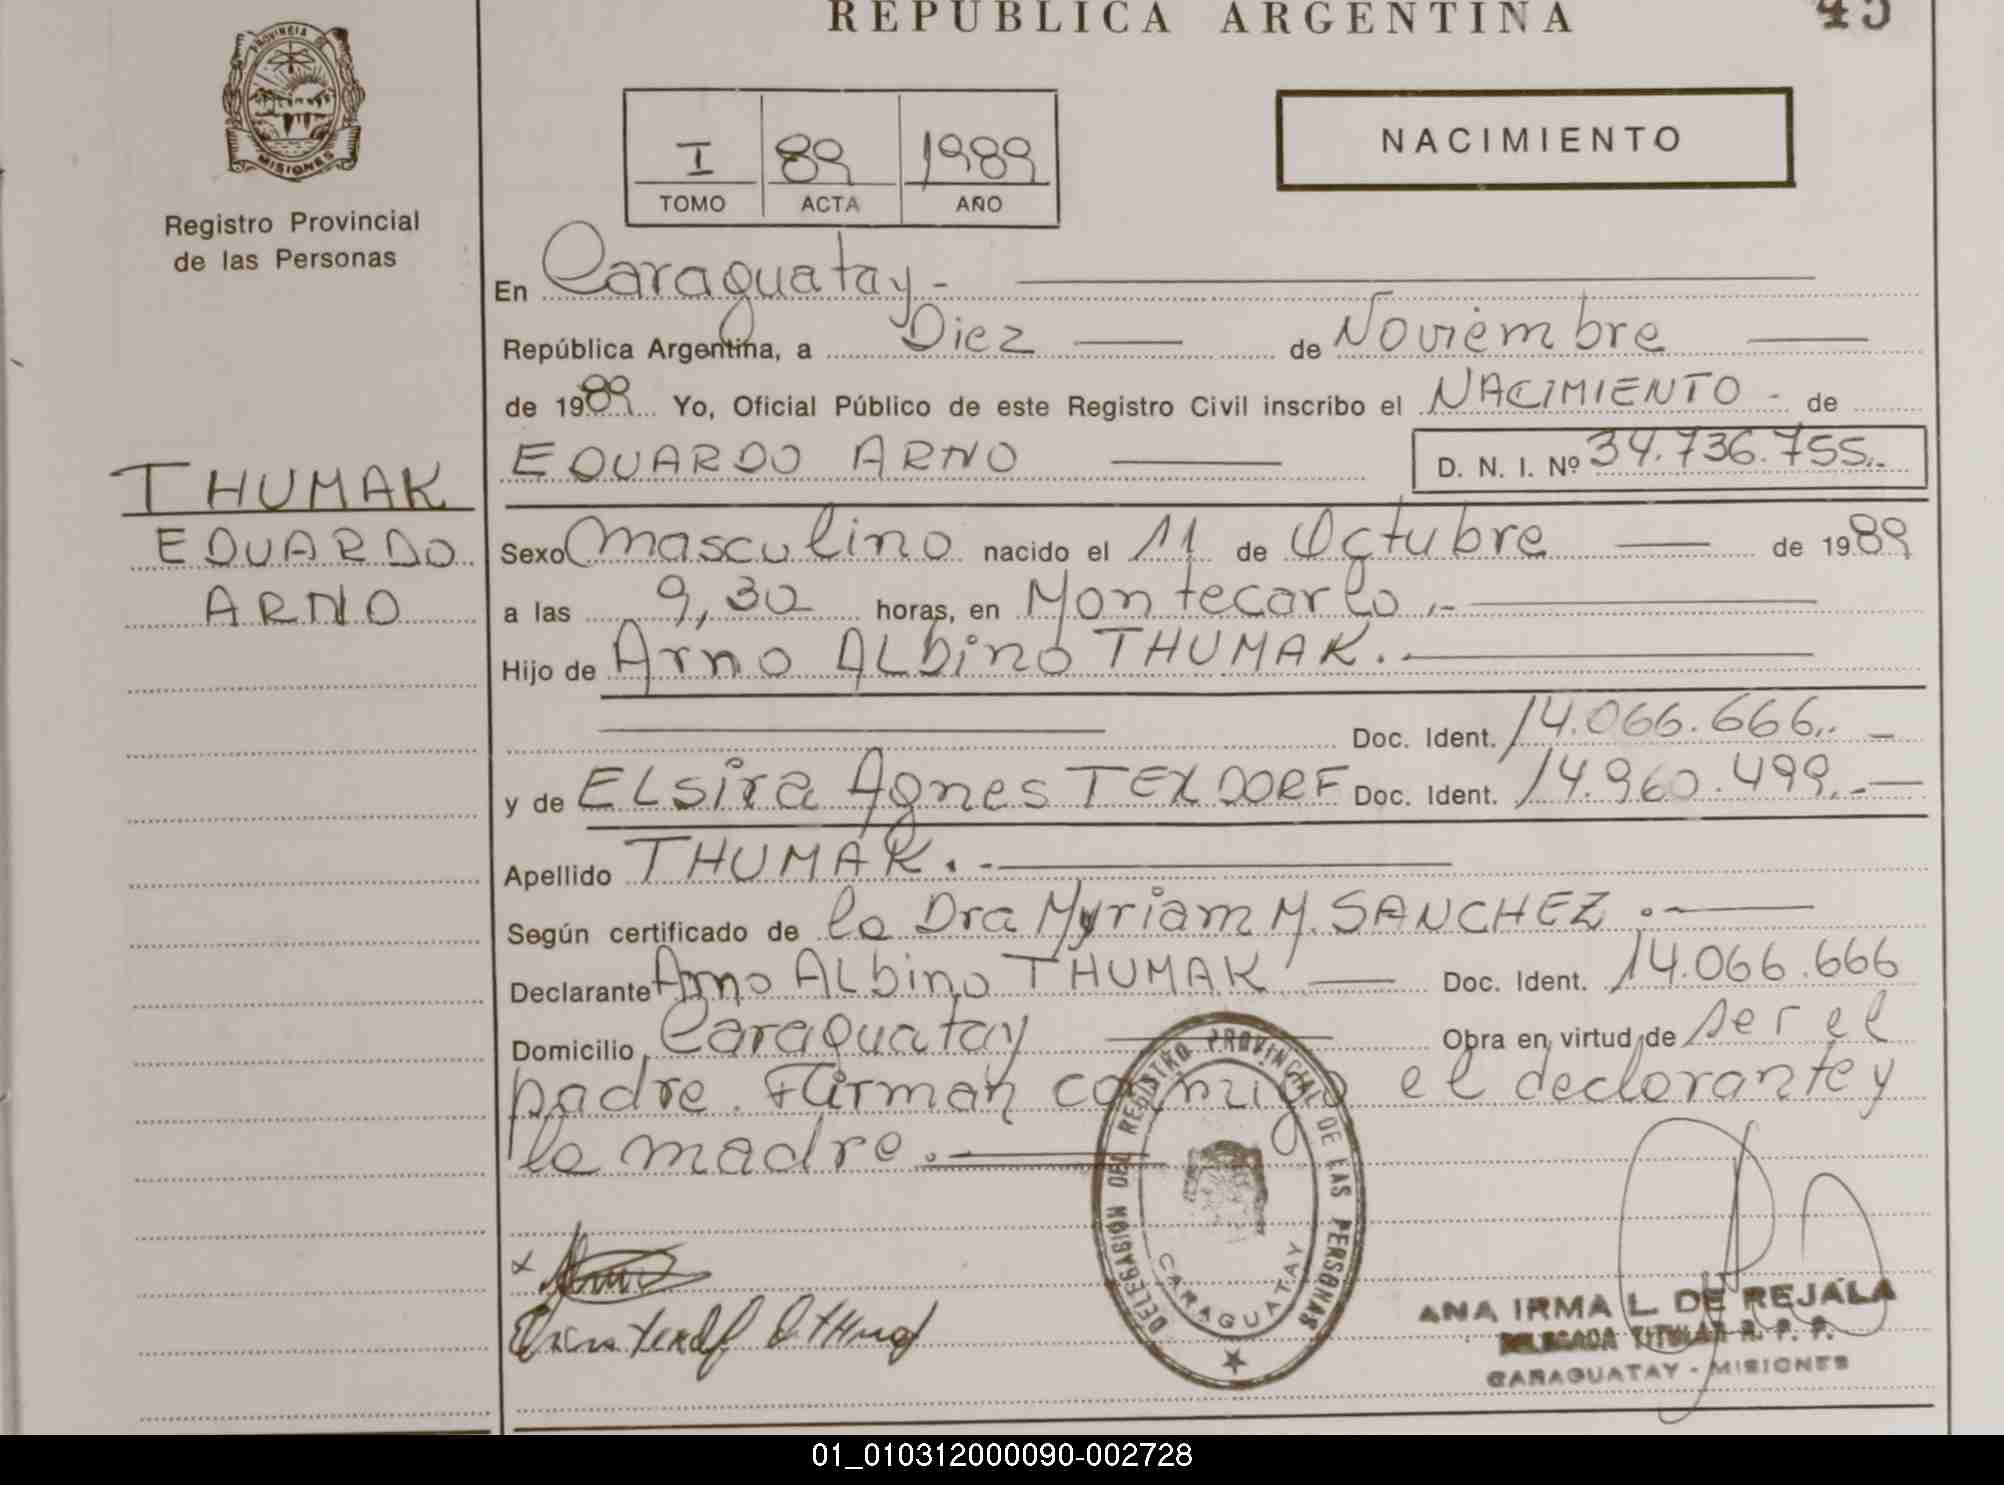 REPUBLICA ARGENTINA
45
PROVINCIA DE
MISIONES
Registro Provincial
de las Personas
I 89 1989
TOMO ACTA AÑO
NACIMIENTO
En Caraguatay.-
República Argentina, a Diez de Noviembre
de 1989 Yo, Oficial Público de este Registro Civil inscribo el NACIMIENTO - de
EDUARDO ARNO D. N. I. Nº 34.736.755.-
THUMAK
EDUARDO
ARNO
Sexo masculino nacido el 11 de Octubre de 1989
a las 9,30 horas, en Montecarlo.-
Hijo de Arno ALbino THUMAK.
Doc. Ident. 14.066.666.-
y de ELsira Agnes TEXDORF Doc. Ident. 14.960.499.-
Apellido THUMAK.-
Según certificado de la Dra Myriam M. SANCHEZ.-
Declarante Arno ALbino THUMAK Doc. Ident. 14.066.666
Domicilio Caraguatay Obra en virtud de ser el
padre. Firman conmigo el declarante y
la madre.-
DELEGACION DEL REGISTRO PROVINCIAL DE LAS PERSONAS
CARAGUATAY
ANA IRMA L. DE REJALA
DELEGADA TITULAR R. P. P.
CARAGUATAY - MISIONES
01_010312000090-002728